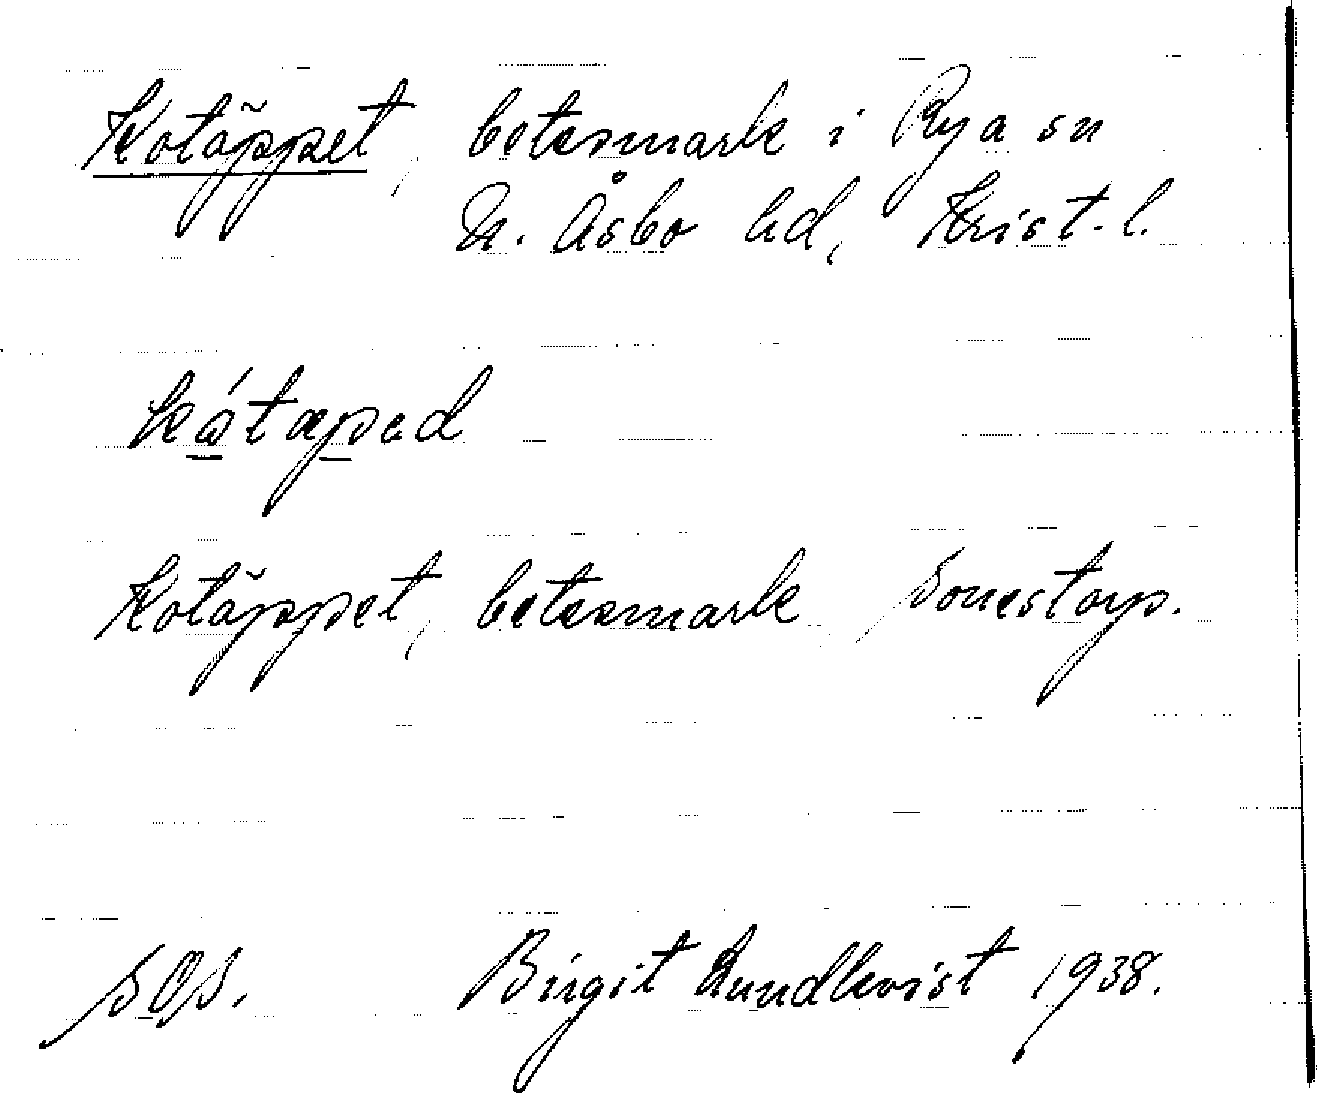 Kotäppet, betesmark i Rya sn
N. Åsbo hd, Krist.l.
kótapəd
Kotäppet, betesmark, Sonestorp.
Birgit Lundkvist 1938.